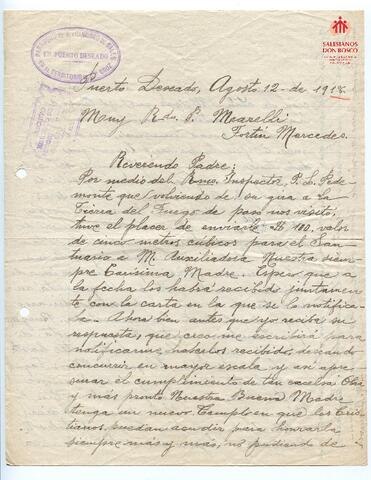 SALESIANOS
DON BOSCO
EN PUERTO DESEADO
Puerto Deseado, Agosto 12 de 1918
Muy Rdo. P. Mearelli
Fortin Mercedes.
Reverendo Padre:
Por medio del Rmo. Inspector, P. L. Pede-
monte que (volviendo de) va gira a la
Tierra del Fuego de paso nos visitó,
tuve el placer de enviarle $ 100, valor
de cinco metros cubicos para el San-
tuario a M. Auxiliadora Nuestra siem-
pre Carisima Madre. Espero que a
la fecha los habrá recibido juntamente
con la carta en la que se lo notifica-
ba. Ahora bien antes que yo reciba su
respuesta, que creo me escribirá para
notificarme haberlos recibido, deseando
concurrir en mayor escala y asi apre-
surar el cumplimiento de tan excelsa Obra
y mas pronto Nuestra Buena Madre
tenga un nuevo Templo en que los Cris-
tianos puedan acudir para honrarla
siempre más y más, no pudiendo de